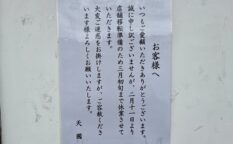 お客様へ
いつもご愛顧いただきありがとうございます。
誠に申し訳ございませんが、二月十一日より
店舗移転準備のため三月初旬まで休業させて
いただきます。
大変ご迷惑をお掛けしますが、ご容赦くださ
います様よろしくお願いいたします。
天國